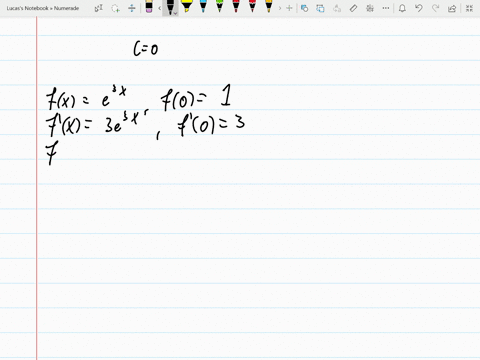 Lucas's Notebook » Numerade
C=0
f(x) = e^{3x}, f(0) = 1
f'(x) = 3e^{3x}, f'(0) = 3
f